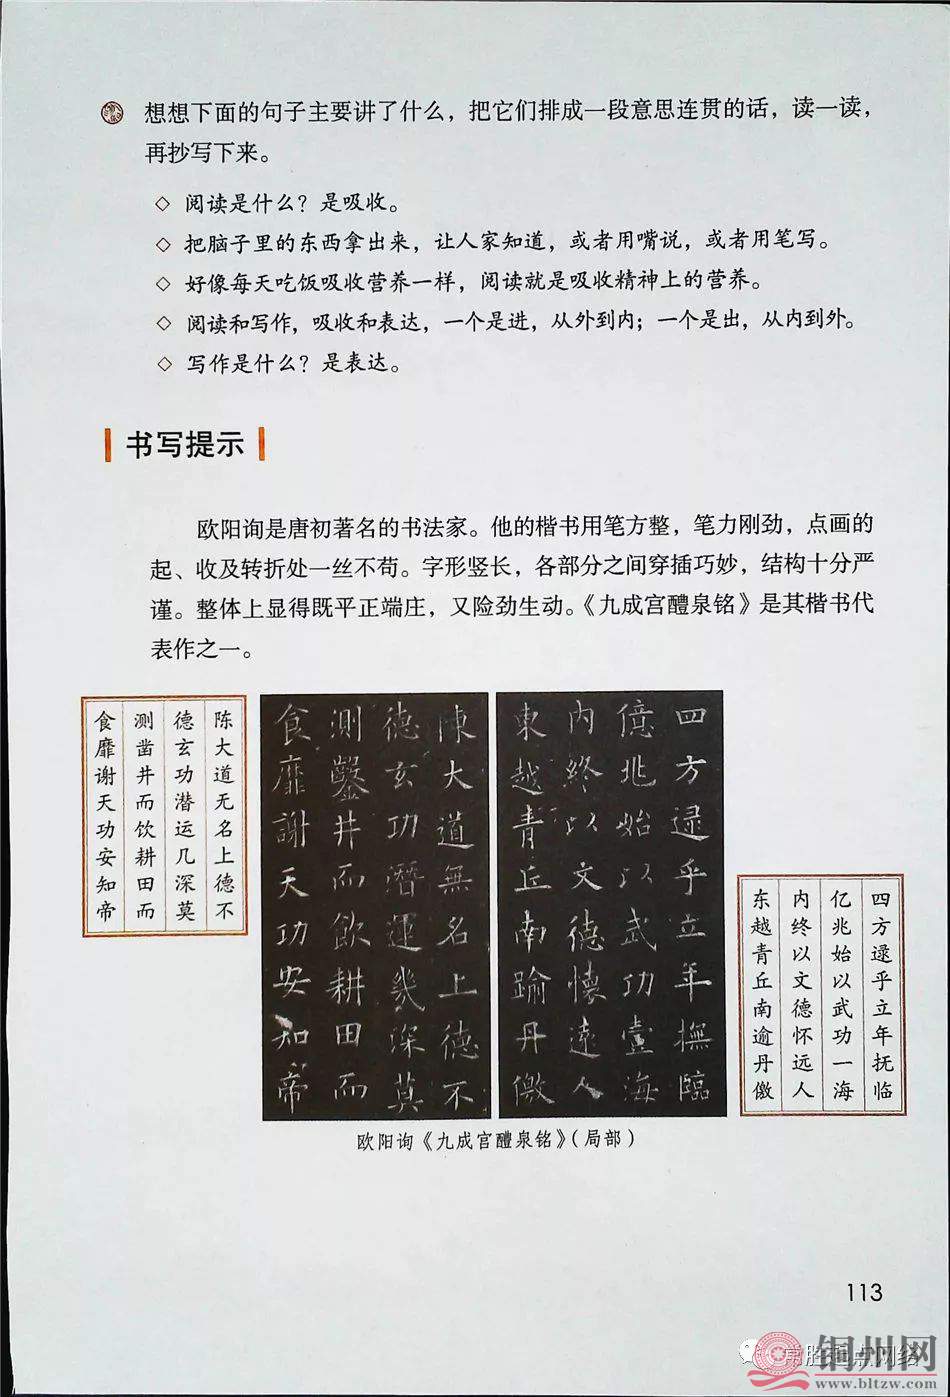 想想下面的句子主要讲了什么，把它们排成一段意思连贯的话，读一读，
再抄写下来。
◇ 阅读是什么？是吸收。
◇ 把脑子里的东西拿出来，让人家知道，或者用嘴说，或者用笔写。
◇ 好像每天吃饭吸收营养一样，阅读就是吸收精神上的营养。
◇ 阅读和写作，吸收和表达，一个是进，从外到内；一个是出，从内到外。
◇ 写作是什么？是表达。
书写提示
欧阳询是唐初著名的书法家。他的楷书用笔方整，笔力刚劲，点画的
起、收及转折处一丝不苟。字形竖长，各部分之间穿插巧妙，结构十分严
谨。整体上显得既平正端庄，又险劲生动。《九成宫醴泉铭》是其楷书代
表作之一。
四方逯乎立年抚临
亿兆始以武功一海
内终以文德怀远人
东越青丘南逾丹儌
四方逯乎立年撫臨
億兆始以武功壹海
内終以文德懷遠人
東越青丘南踰丹儌
陳大道無名上德不
德玄功潛運幾深莫
測鑿井而飲耕田而
食靡謝天功安知帝
陈大道无名上德不
德玄功潜运几深莫
测凿井而饮耕田而
食靡谢天功安知帝
欧阳询《九成宫醴泉铭》（局部）
113
铜州网
www.bltzw.com